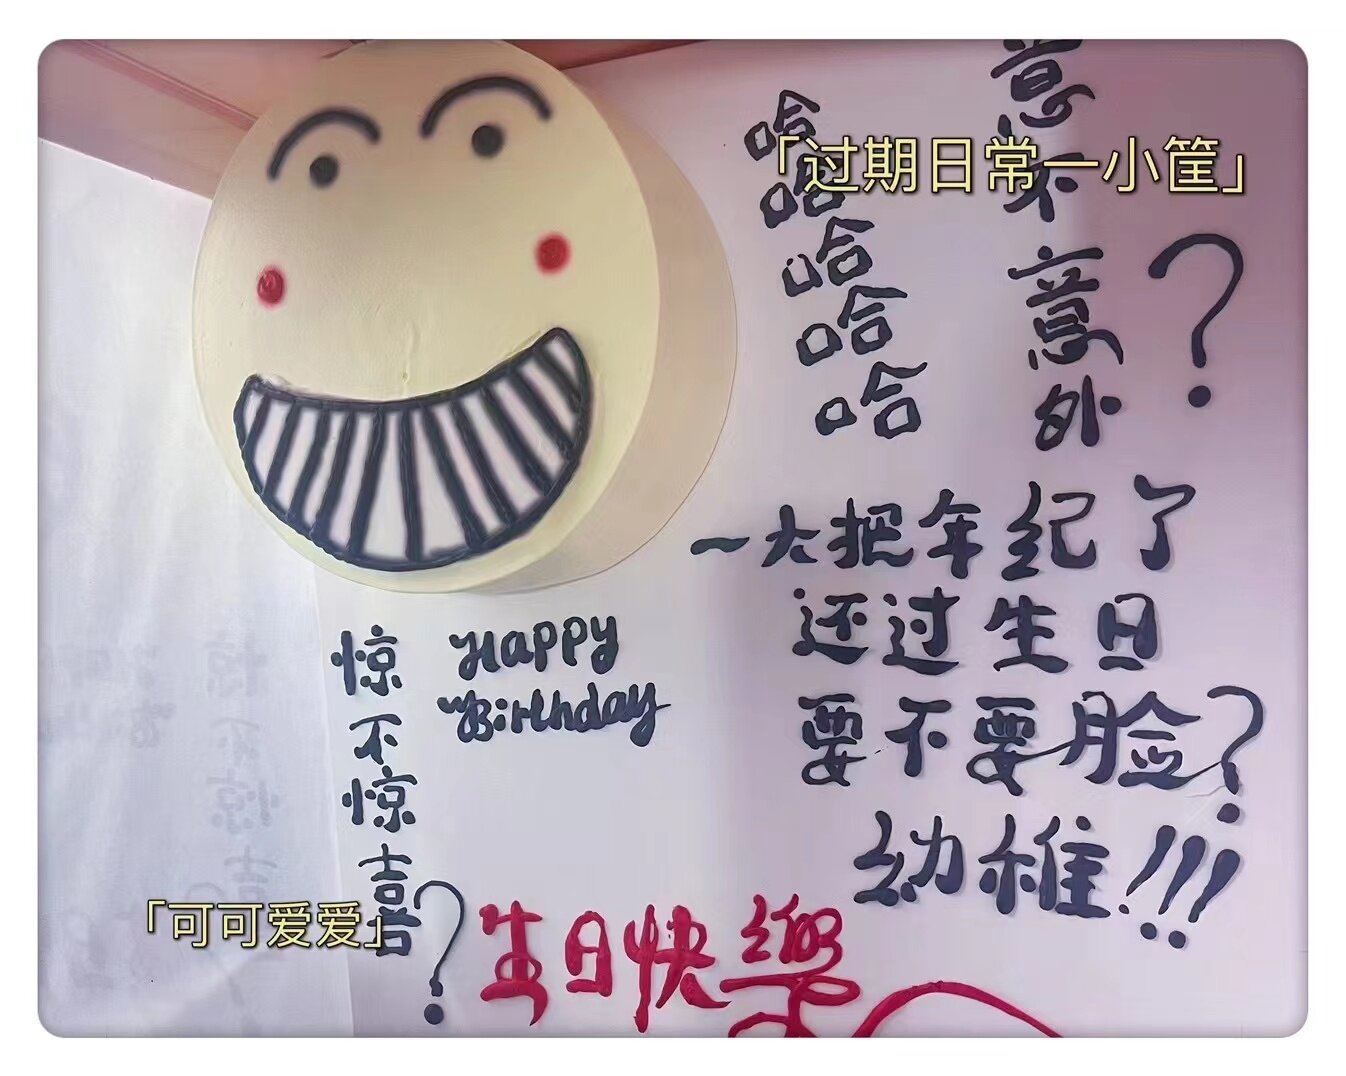 哈哈哈哈哈
意不意外?
「过期日常一小筐」
一大把年纪了
还过生日
要不要脸?
幼稚!!!
惊不惊喜?
Happy
Birthday
「可可爱爱」
生日快樂